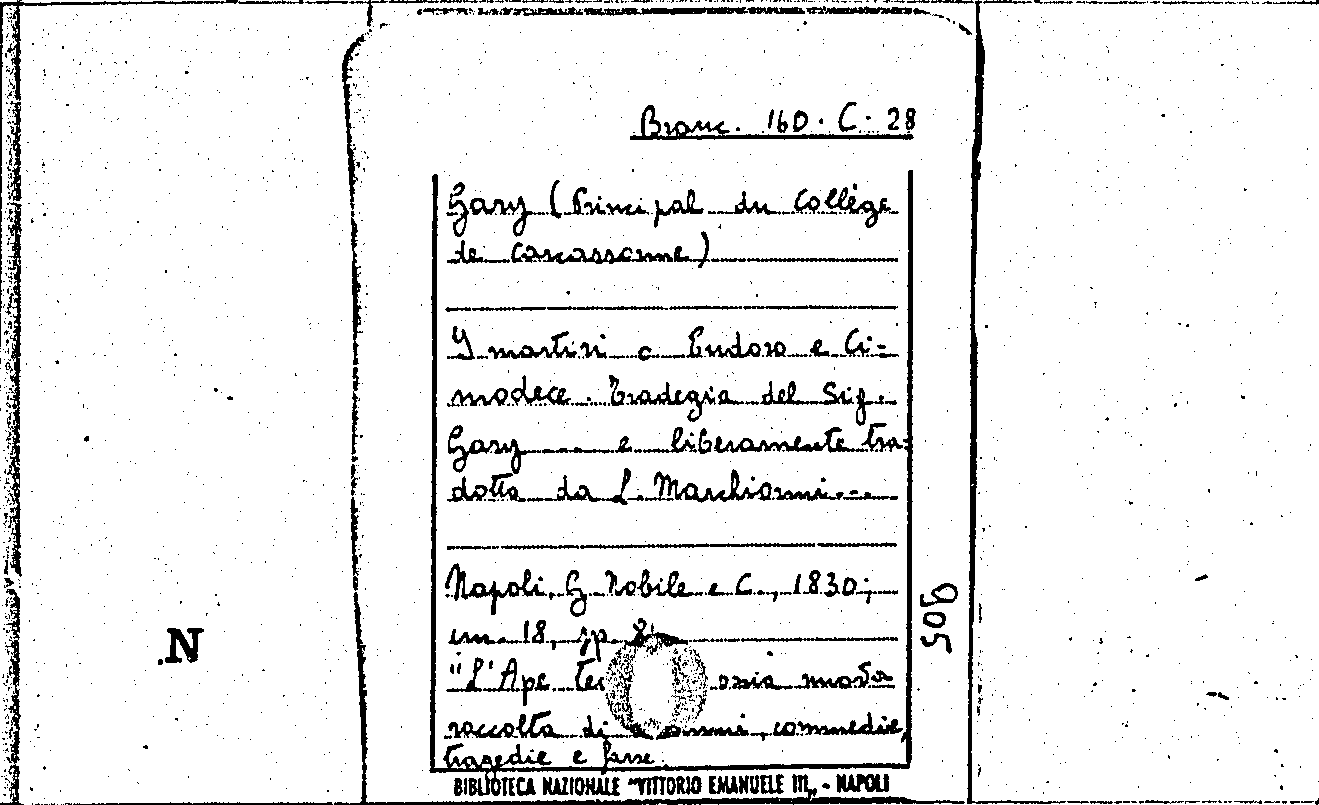 Branc. 160. C. 28
Gary (Principal du Collège
de Carcassonne)
I martiri o Eudoro e Ci=
modece. Tradegia del Sig.
Gary .... e liberamente tra=
dotta da L. Marchionni....
Napoli, G. Nobile e C., 1830;
in. 18, pp.
"L'Ape ossia nuova
raccolta di commedie,
tragedie e farse.
BIBLIOTECA NAZIONALE "VITTORIO EMANUELE III„ - NAPOLI
N